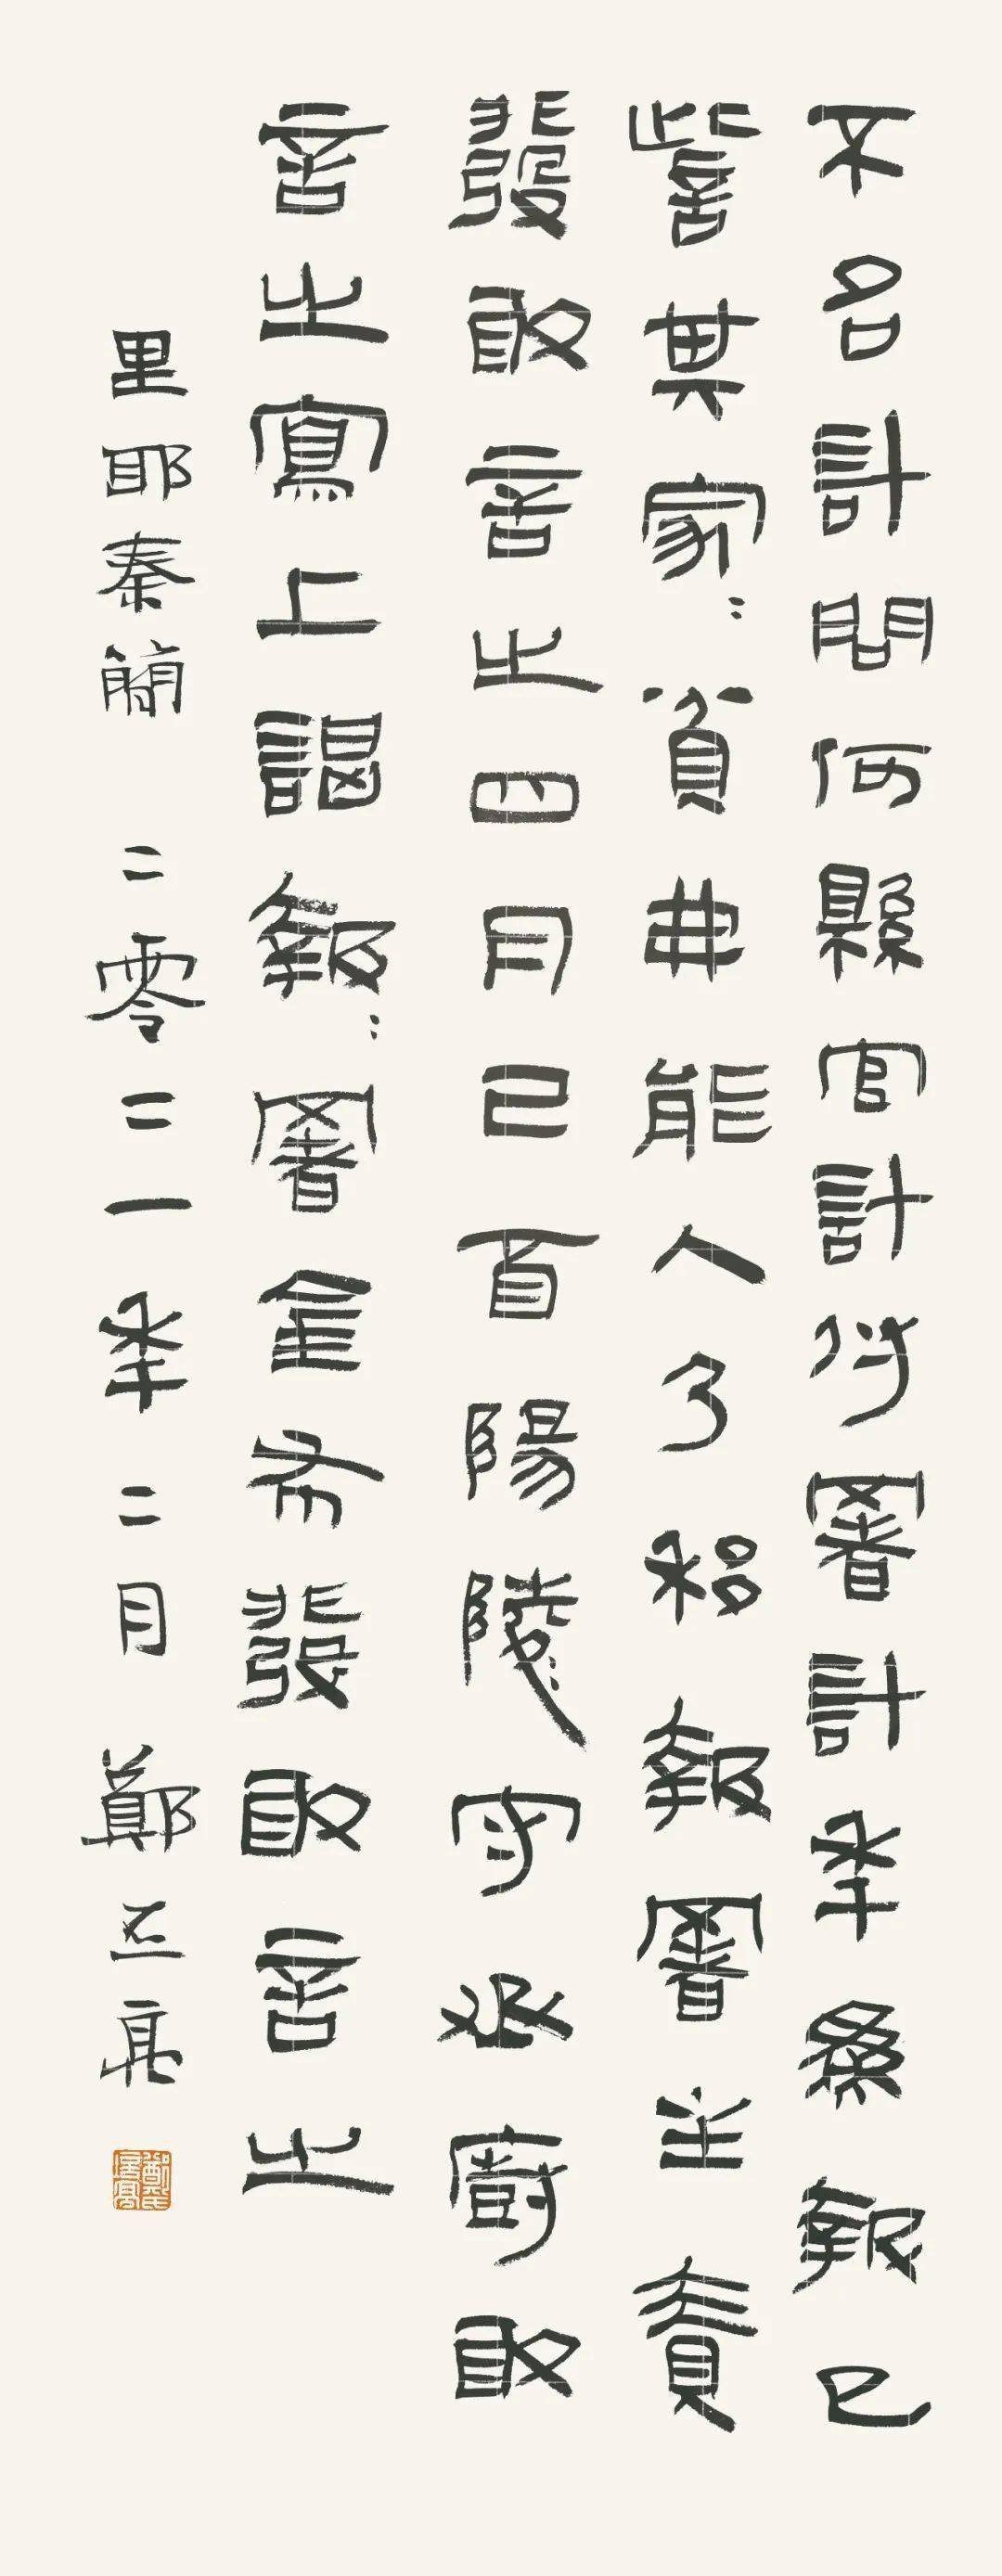 不名計問何縣官計付署計年為報已
訾其家〻貧弗能入乃移報署主責
發敢言之四月己酉陽陵〻守丞廚敢
言之寫上謁報〻署金布發敢言之
里耶秦簡 二零二一年二月 鄭正亮